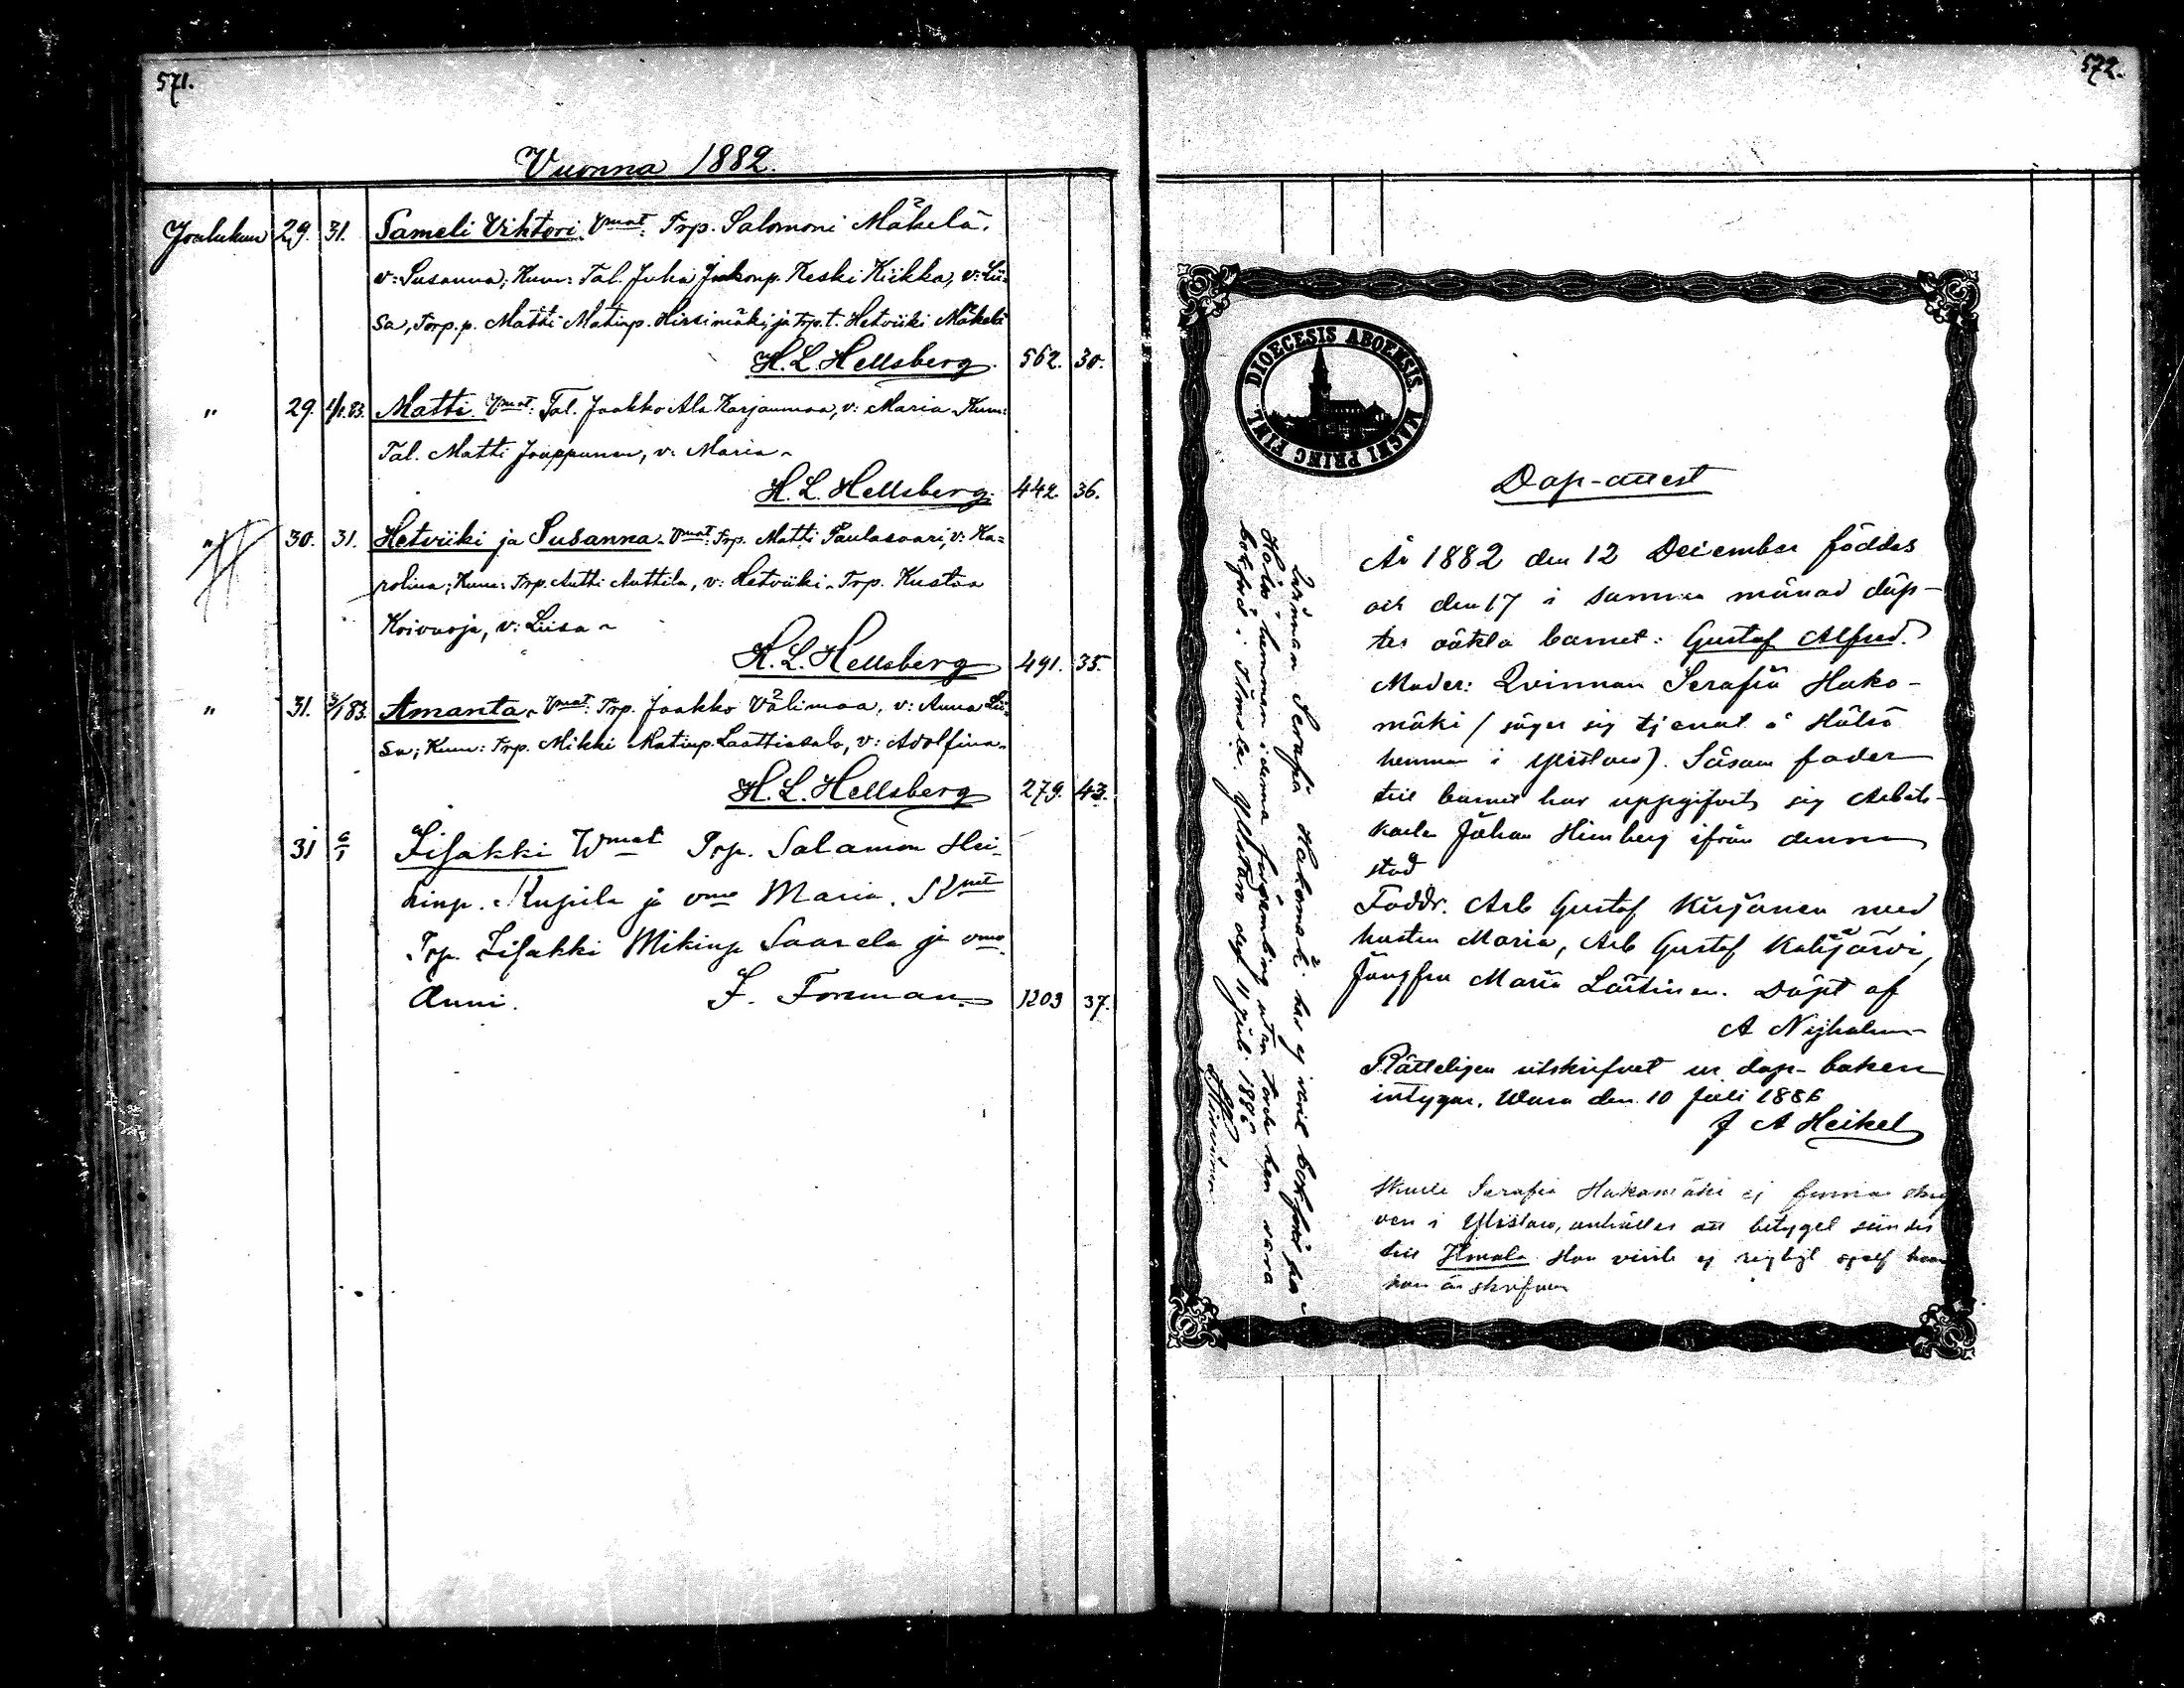 571.
Vuonna 1882.
Joulukuu 29. 31. Sameli Vihtori. Vmat: Trp. Salomoni Mäkelä,
v: Susanna; Kum: Tal. Juha Jaakonp. Keski Kiikka, v: Lii=
sa, Torp.p. Matti Matinp. Hirsimäki, ja Trp.t. Hetviiki Mäkelä
H. L. Hellsberg. 562. 30.
" 29. 1/1 83. Matti. Vmat: Tal. Jaakko Ala Karjanmaa, v: Maria. Kum:
Tal. Matti Jouppunen, v: Maria.
H. L. Hellsberg. 442. 36.
" 30. 31. Hetviiki ja Susanna. Vmat: Trp. Matti Paulasaari, v: Ka=
rolina; Kum: Trp. Antti Anttila, v: Hetviiki. Trp. Kustaa
Koivuoja, v: Liisa
H. L. Hellsberg 491. 35.
" 31. 3/1 83. Amanta. Vmat: Trp. Jaakko Välimaa, v: Anna Lii=
sa; Kum: Trp. Mikki Matinp. Laattiasalo, v: Adolfina.
H. L. Hellsberg 279. 43.
31 6/1 Iisakki Wmat Trp. Salamon Hei-
kinp. Kupila ja vmo Maria.
Trp. Iisakki Mikinp Saarela ja vmo.
Anni. J. Forsman. 1203 37.
572.
DIOECESIS ABOENSIS. MAGNI PRINC FINL.
Dop-attest
År 1882 den 12 December föddes
och den 17 i samma månad döp-
tes oäkta barnet: Gustaf Alfred.
Moder: Qvinnan Serafia Hako-
mäki (säger sig tjenat å Hölsö
hemman i Ylistaro). Såsom fader
till barnet har uppgifvits sig Arbets-
karlen Johan Heimberg ifrån denna
stad
Faddr. Arb Gustaf Kirjanen med
hustru Maria, Arb Gustaf Kalijärvi,
Jungfru Maria Laitinen. Döpt af
A Nyholm
Rätteligen utskrifvet ur dop-boken
intygar, Wasa den 10 Juli 1886
J A Heikel
Skulle Serafia Hakomäki ej finnas skrif
ven i Ylistaro, anhålles att betyget sändes
till Ilmola. Hon visste ej rigtigt sjelf hvar
hon är skrifven
Qvinnan Serafia Hakomäki har ej varit bokförd på
hemman i denna församling utan torde hon vara
bokförd i Ilmola. Ylistaro dep 11 Juli 1886